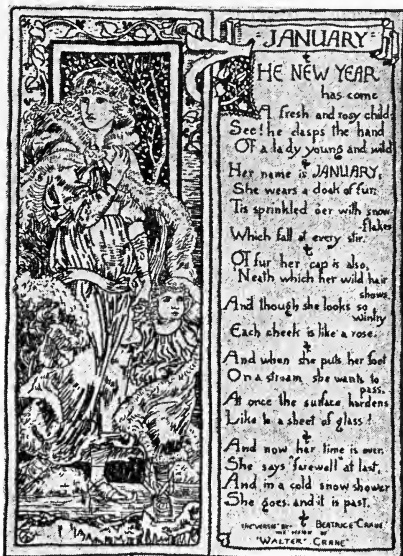 JANUARY
THE NEW YEAR
has come
A fresh and rosy child;
See! he clasps the hand
Of a lady young and wild
Her name is JANUARY,
She wears a cloak of fur;
Tis sprinkled oer with snow-
flakes
Which fall at every stir.
Of fur her cap is also,
Neath which her wild hair
shows
And though she looks so
wintry
Each cheek is like a rose.
And when she puts her foot
On a stream she wants to
pass.
At once the surface hardens
Like to a sheet of glass!
And now her time is over.
She says 'farewell' at last,
And in a cold snow shower
She goes. and it is past.
BEATRICE CRANE
"WALTER" CRANE